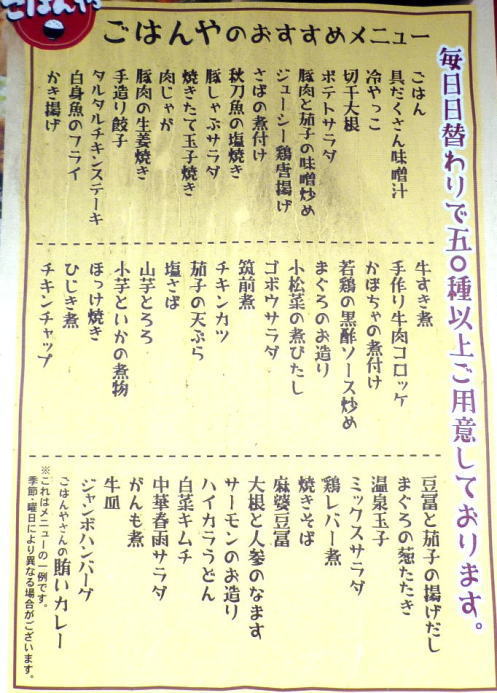 ごはんや
ごはんやのおすすめメニュー
毎日日替わりで五〇種以上ご用意しております。
ごはん
具だくさん味噌汁
冷やっこ
切干大根
ポテトサラダ
豚肉と茄子の味噌炒め
ジューシー鶏唐揚げ
さばの煮付け
秋刀魚の塩焼き
豚しゃぶサラダ
焼きたて玉子焼き
肉じゃが
豚肉の生姜焼き
手造り餃子
タルタルチキンステーキ
白身魚のフライ
かき揚げ
牛すき煮
手作り牛肉コロッケ
かぼちゃの煮付け
若鶏の黒酢ソース炒め
まぐろのお造り
小松菜の煮びたし
ゴボウサラダ
筑前煮
チキンカツ
茄子の天ぷら
塩さば
山芋とろろ
小芋といかの煮物
ほっけ焼き
ひじき煮
チキンチャップ
豆冨と茄子の揚げだし
まぐろの葱たたき
温泉玉子
ミックスサラダ
鶏レバー煮
焼きそば
麻婆豆冨
大根と人参のなます
サーモンのお造り
ハイカラうどん
白菜キムチ
中華春雨サラダ
がんも煮
牛皿
ジャンボハンバーグ
ごはんやさんの賄いカレー
※これはメニューの一例です。
季節・曜日により異なる場合がございます。